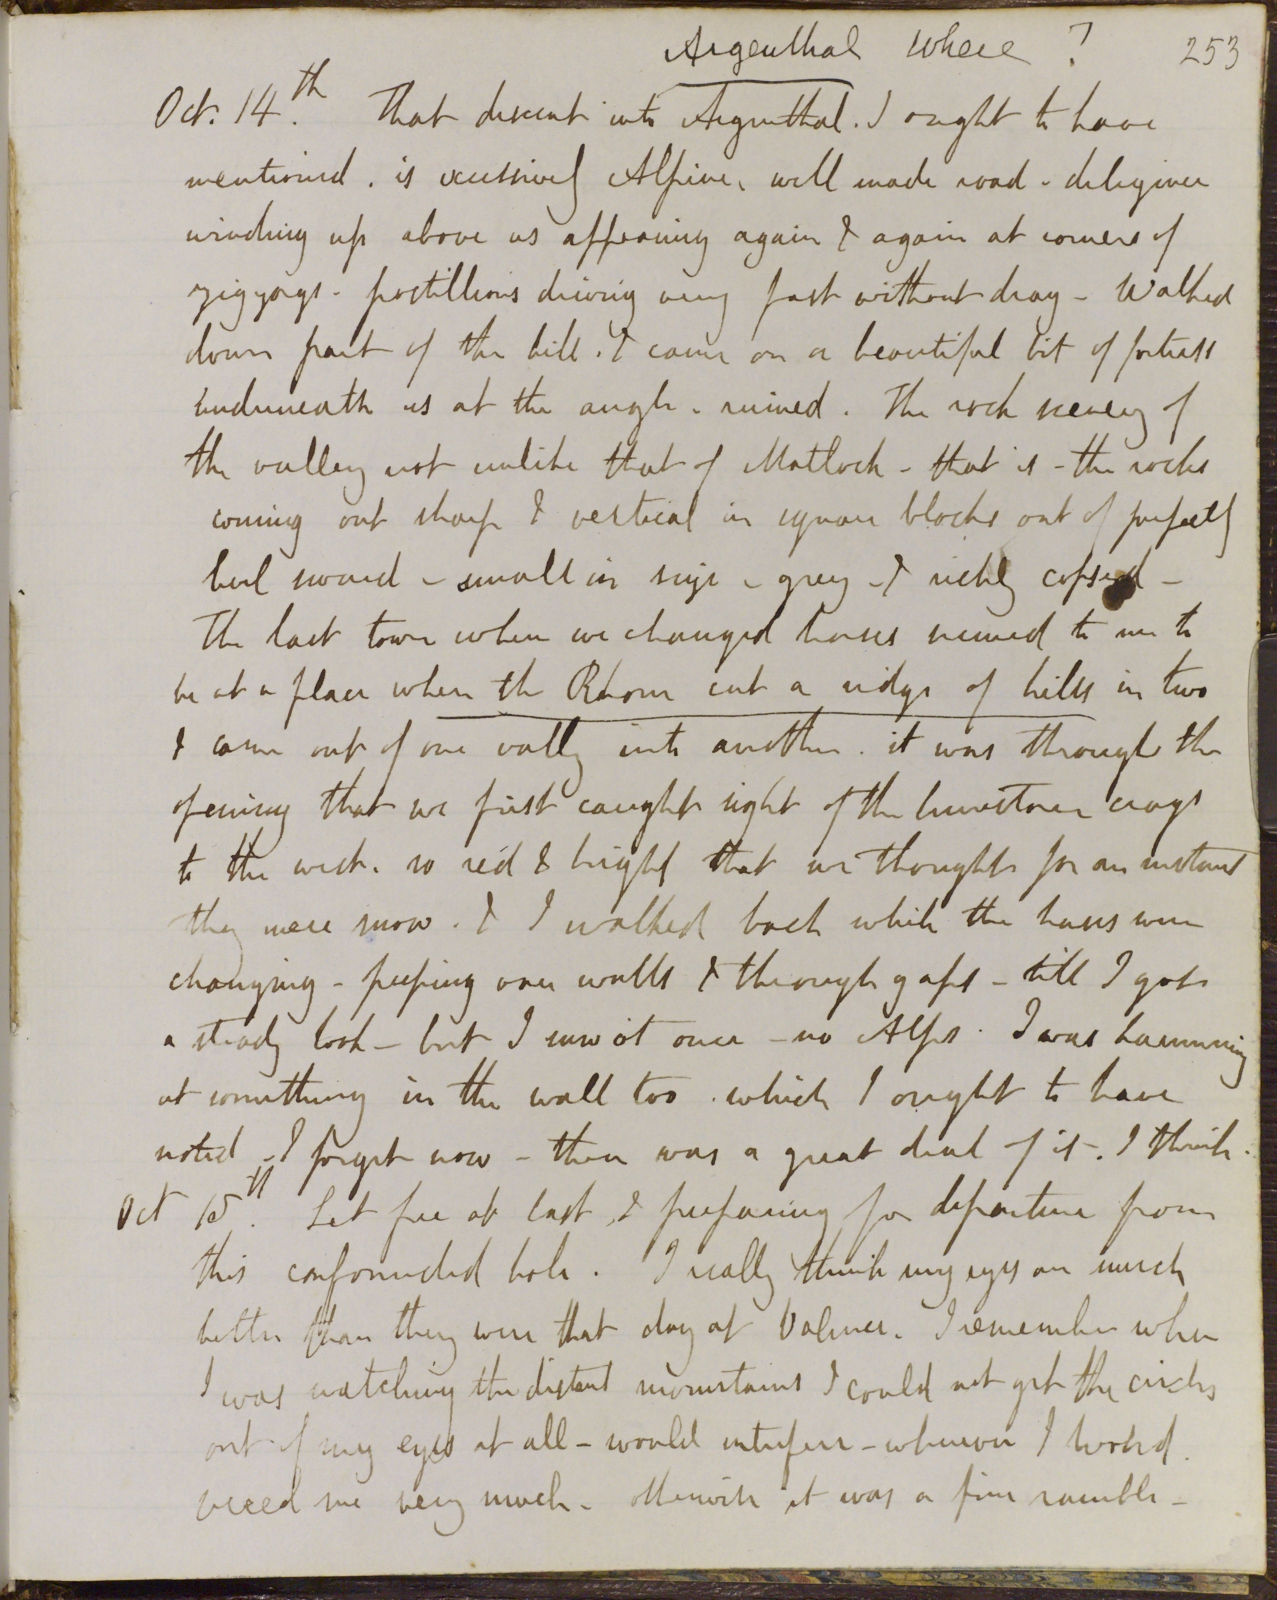 Argenthal Where ?
253
Oct. 14th. That descent into Argenthal. I ought to have
mentioned. is excessively Alpine, well made road - diligence
winding up above us appearing again & again at corners of
zigzags - postillions driving very fast without drag - Walked
down part of the hill. & came on a beautiful bit of fortress
underneath us at the angle - ruined. The rock scenery of
the valley not unlike that of Matlock - that is - the rocks
coming out sharp & vertical in square blocks out of perfectly
level sward - small in size - grey - & richly copsed -
The last town where we changed horses seemed to me to
be at a place where the Rhone cut a ridge of hills in two
& came out of one vally into another. it was through the
opening that we first caught sight of the limestone crags
to the west. so red & bright that we thought for an instant
they were snow. & I walked back while the horses were
changing - peeping over walls & through gaps - till I got
a steady look - but I saw at once - no Alps. I was hammering
at something in the wall too. which I ought to have
noted - I forget now - there was a great deal of it. I think.
Oct 15th. Let free at last, & preparing for departure from
this confounded hole. I really think my eyes are much
better than they were that day at Valence. I remember when
I was watching the distant mountains I could not get the circles
out of my eyes at all - would interfere - wherever I looked.
vexed me very much - otherwise it was a fine ramble -